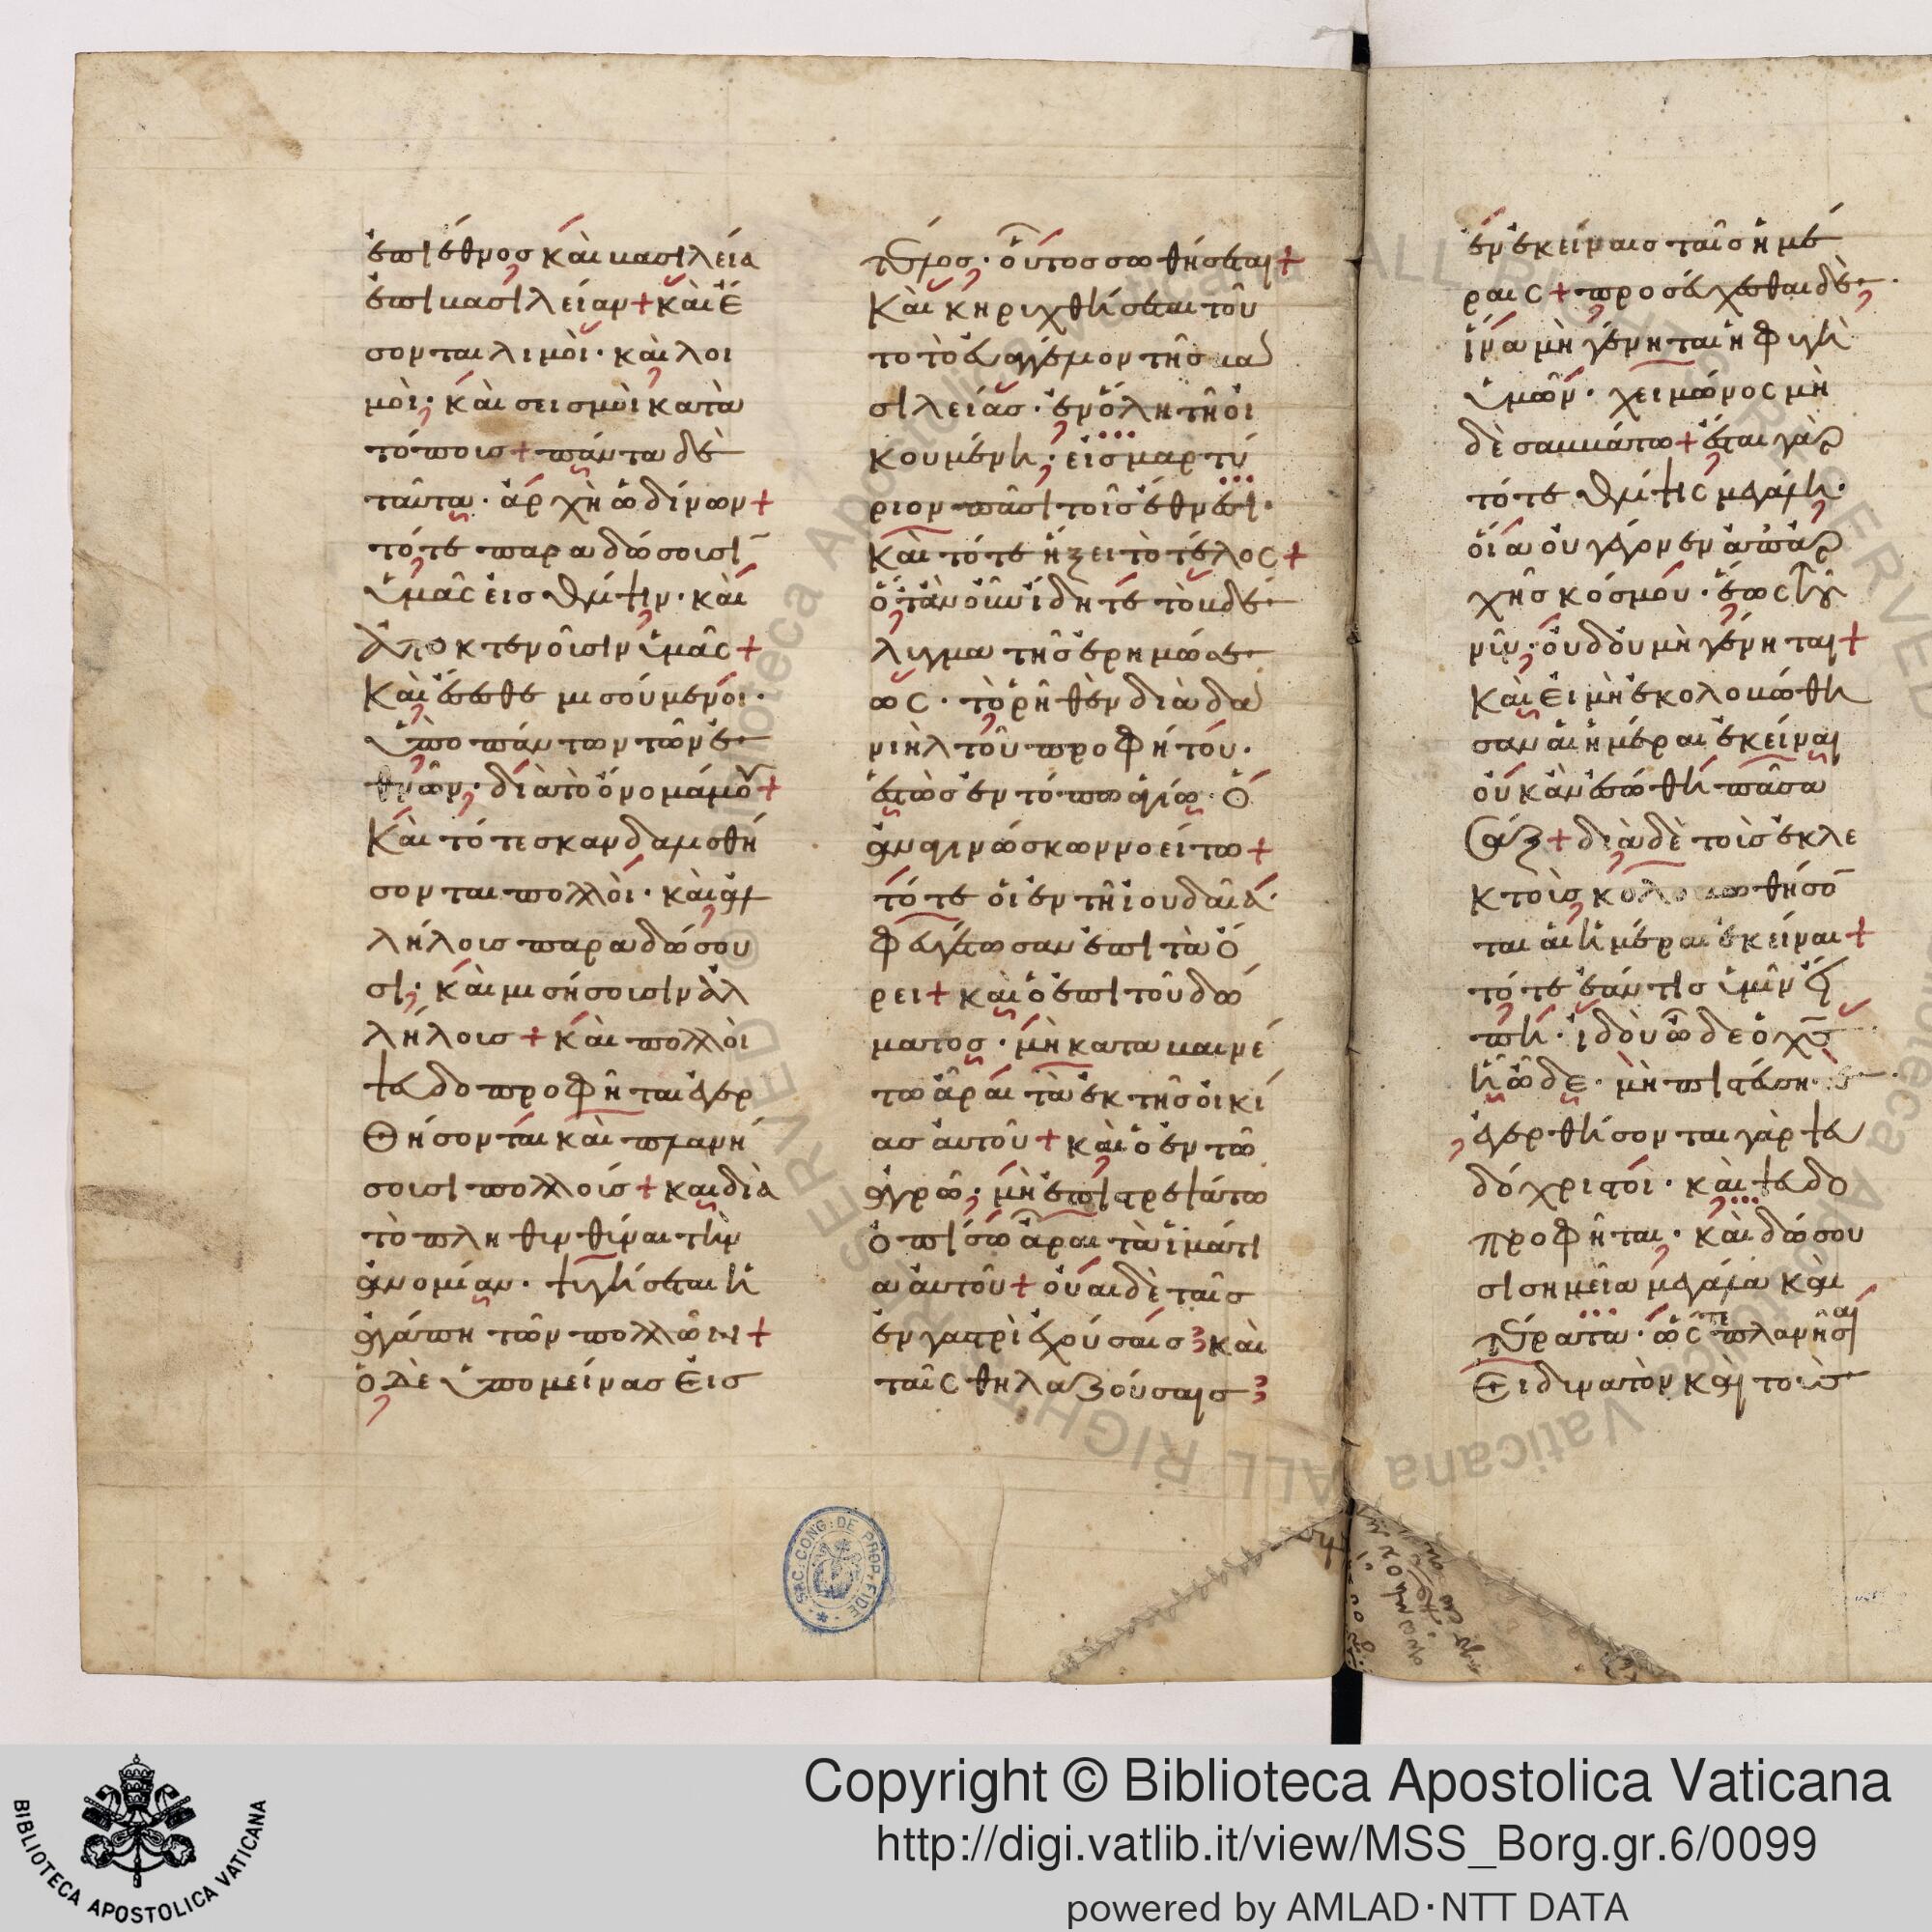 ἐπὶ ἔθνος καὶ βασιλεία
ἐπὶ βασιλείαν + καὶ ἔ
σονται λιμοὶ · καὶ λοι
μοὶ · καὶ σεισμοὶ κατὰ
τόποις + πάντα δὲ
ταῦτα · ἀρχὴ ὠδίνων +
τότε παραδώσουσι
ὑμᾶς εἰς θλίψιν · καὶ
ἀποκτενοῦσιν ὑμᾶς +
Καὶ ἔσεσθε μισούμενοι ·
ὑπὸ πάντων τῶν ἐ
θνῶν · διὰ τὸ ὄνομά μου +
Καὶ τότε σκανδαλισθή
σονται πολλοὶ · καὶ ἀλ
λήλοις παραδώσου
σι · καὶ μισήσουσιν ἀλ
λήλοις + καὶ πολλοὶ
ψευδοπροφῆται ἐγερ
θήσονται καὶ πλανή
σουσι πολλούς + καὶ διὰ
τὸ πληθυνθῆναι τὴν
ἀνομίαν · ψυγήσεται ἡ
ἀγάπη τῶν πολλῶν +
ὁ δὲ ὑπομείνας εἰς
τέλος · οὗτος σωθήσεται +
Καὶ κηρυχθήσεται τοῦ
το τὸ εὐαγγέλιον τῆς βα
σιλείας · ἐν ὅλη τῆ οἰ
κουμένη · εἰς μαρτύ
ριον πᾶσι τοῖς ἔθνεσι ·
Καὶ τότε ἥξει τὸ τέλος +
ὅταν οὖν ἴδητε τὸ βδέ
λυγμα τῆς ἐρημώσε
ως · τὸ ῥηθὲν διὰ δα
νιὴλ τοῦ προφήτου ·
ἑστὼς ἐν τόπω ἁγίω · ὁ
ἀναγινώσκων νοείτω +
τότε οἱ ἐν τῆ ἰουδαία ·
φευγέτωσαν ἐπὶ τὰ ὄ
ρει + καὶ ὁ ἐπὶ τοῦ δώ
ματος · μὴ καταβαινέ
τω ἆραι τὰ ἐκ τῆς οἰκί
ας αὐτοῦ + καὶ ὁ ἐν τῶ
ἀγρῶ · μὴ ἐπιστρεψάτω
ὀπίσω ἆραι τὰ ἱμάτι
α αὐτοῦ + οὐαὶ δὲ ταῖς
ἐν γαστρὶ ἐχούσαις καὶ
ταῖς θηλαζούσαις
ἐν ἐκείναις ταῖς ἡμέ
ραις + προσεύχεσθαι δὲ
ἵνα μὴ γένηται ἡ φυγὴ
ὑμῶν · χειμῶνος μὴ
δὲ σαββάτω + ἔσται γὰρ
τότε θλίψις μεγάλη ·
οἵα οὐ γέγονεν ἀπ ἀρ
χῆς κόσμου · ἕως τοῦ
νῦν · οὐδ οὐ μὴ γένηται +
Καὶ εἰ μὴ ἐκολοβώθη
σαν αἱ ἡμέραι ἐκεῖναι
οὐκ ἂν ἐσώθη πᾶσα
σάρξ + διὰ δὲ τοὺς ἐκλε
κτοὺς κολοβωθήσον
ται αἱ ἡμέραι ἐκεῖναι +
τότε ἐάν τις ὑμῖν εἴ
πη · ἰδοὺ ὧδε ὁ χς
ἢ ὧδε · μὴ πιστεύση
ἐγερθήσονται γὰρ ψευ
δόχριστοι · καὶ ψευδο
προφῆται · καὶ δώσου
σι σημεῖα μεγάλα καὶ
τέρατα · ὥς πλανῆσαι
Εἰ δυνατὸν καὶ τοὺς
SAC: CONG: DE PROP: FIDE
BIBLIOTECA APOSTOLICA VATICANA
Copyright © Biblioteca Apostolica Vaticana
http://digi.vatlib.it/view/MSS_Borg.gr.6/0099
powered by AMLAD·NTT DATA